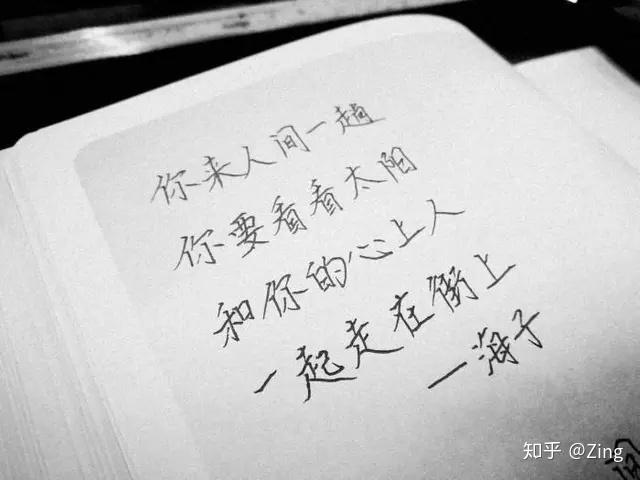 你来人间一趟
你要看看太阳
和你的心上人
一起走在街上
—海子
知乎 @Zing